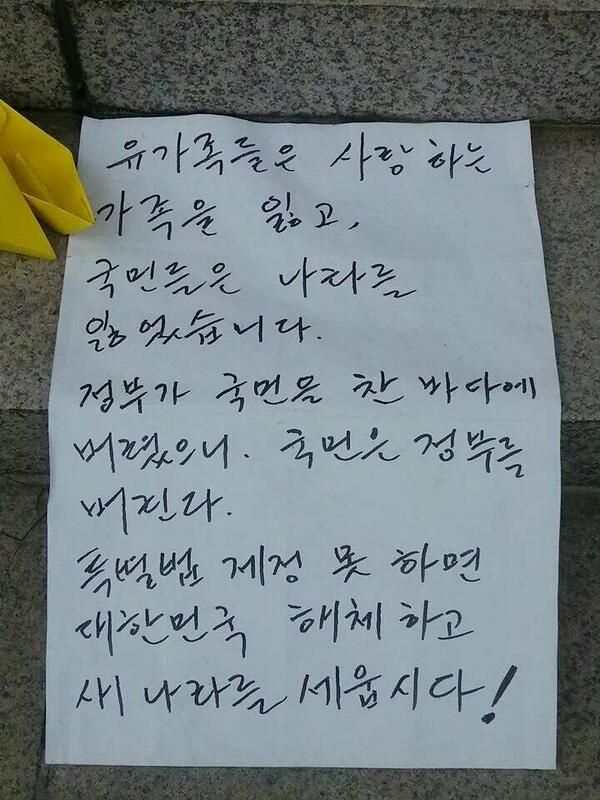 유가족들은 사랑하는
가족을 잃고,
국민들은 나라를
잃었습니다.
정부가 국민을 찬 바다에
버렸으니. 국민은 정부를
버린다.
특별법 제정 못 하면
대한민국 해체하고
새 나라를 세웁시다!